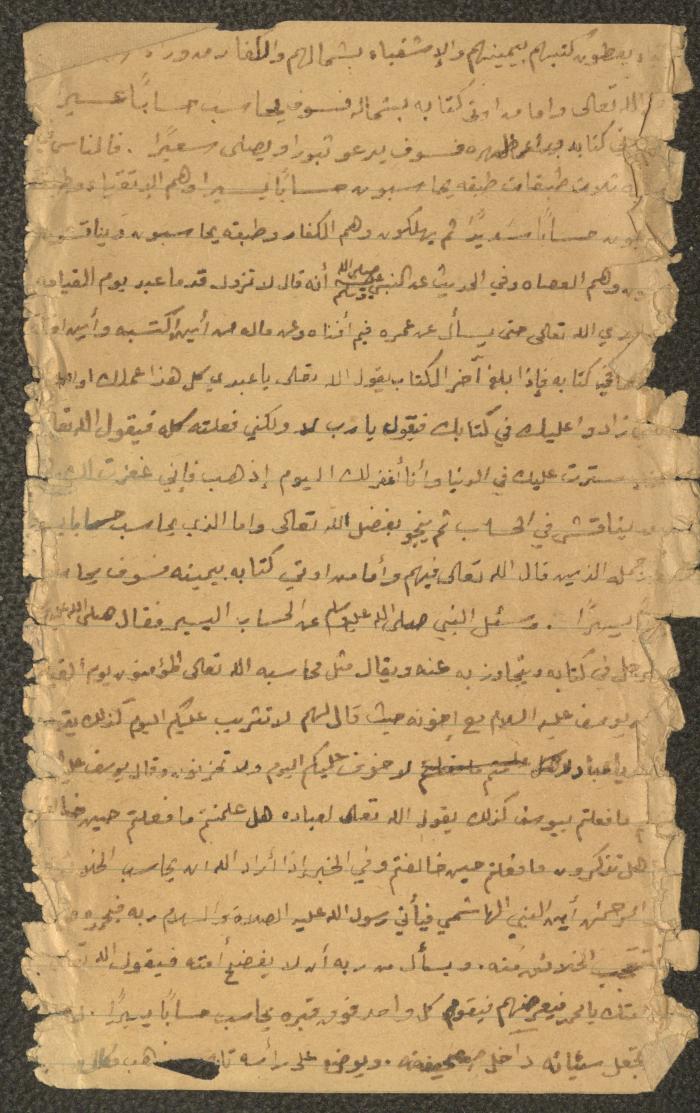 يعطون كتبهم بيمينهم والإشقياء بشمالهم والكفار من وراء
الله تعالى واما من اوتى كتابه بشماله فسوف يحاسب حسابًا عسيرا
كتابه وراء ظهره فسوف يدعو ثبورا ويصلى سعيرًا . فالناس
ثلاث طبقات طبقه يحاسبون حسابًا يسيرا وهم الإتقياء
حسابًا شديدًا ثم يهلكون وهم الكفار وطبقه يحاسبون ويناقشون
وهم العصاه وفي الحديث عن النبي صلى الله عليه وسلم أنه قال لا تزول قدما عبد يوم القيامه
يدي الله تعالى حتى يسأل عن عمره فيم أفناه وعن ماله من أين اكتسبه وأين
في كتابه فإذا بلغ آخر الكتاب يقول الله تعالى يا عبدي كل هذا عملك او
زادوا عليك في كتابك فيقول يا رب لا ولكني فعلته كله فيقول الله تعالى
سترت عليك في الدنيا وأنا أغفر لك اليوم إذهب فإني غفرت لك
يناقش في الحساب ثم ينجو بفضل الله تعالى واما الذي يحاسب حسابا
جمله الذين قال الله تعالى فيهم وأما من اوتي كتابه بيمينه فسوف يحاسب
يسيرًا . وسئل النبي صلى الله عليه وسلم عن الحساب اليسير فقال صلى الله عليه
في كتابه ويتجاوز به عنه ويقال مثل محاسبه الله تعالى المؤمنون يوم القيامه
يوسف عليه السلام مع إخوته حيث قال لهم لا تثريب عليكم اليوم كذلك يقول
يا عباد لا خوف عليكم اليوم ولا تحزنون وقال يوسف عليه
ما فعلتم بيوسف كذلك يقول الله تعالى لعباده هل علمتم ما فعلتم حين
هل تذكرون ما فعلتم حين خالفتم وفي الخبر إذا أراد الله ان يحاسب الخلائق
الرحمن أين النبي الهاشمي فيأتي رسول الله عليه الصلاة والسلام ربه
الخلائق منه . ويسأل من ربه أن لا يفضح أمته فيقول الله تعالى
أمتك يا محمد فيعرضهم فيقوم كل واحد فوق قبره يحاسب حسابًا يسيرًا .
تجعل سيئاته داخل صحيفته . ويوضع على رأسه تاج